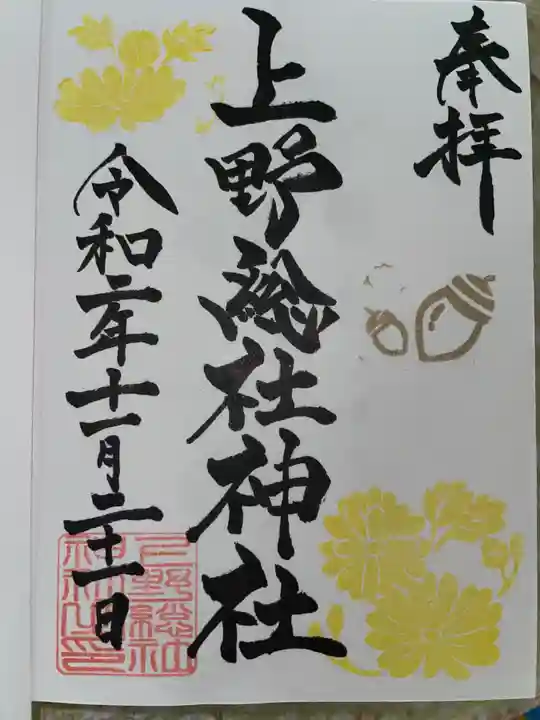 奉拝
上野總社神社
令和二年十一月二十一日
上野総社
神社之印